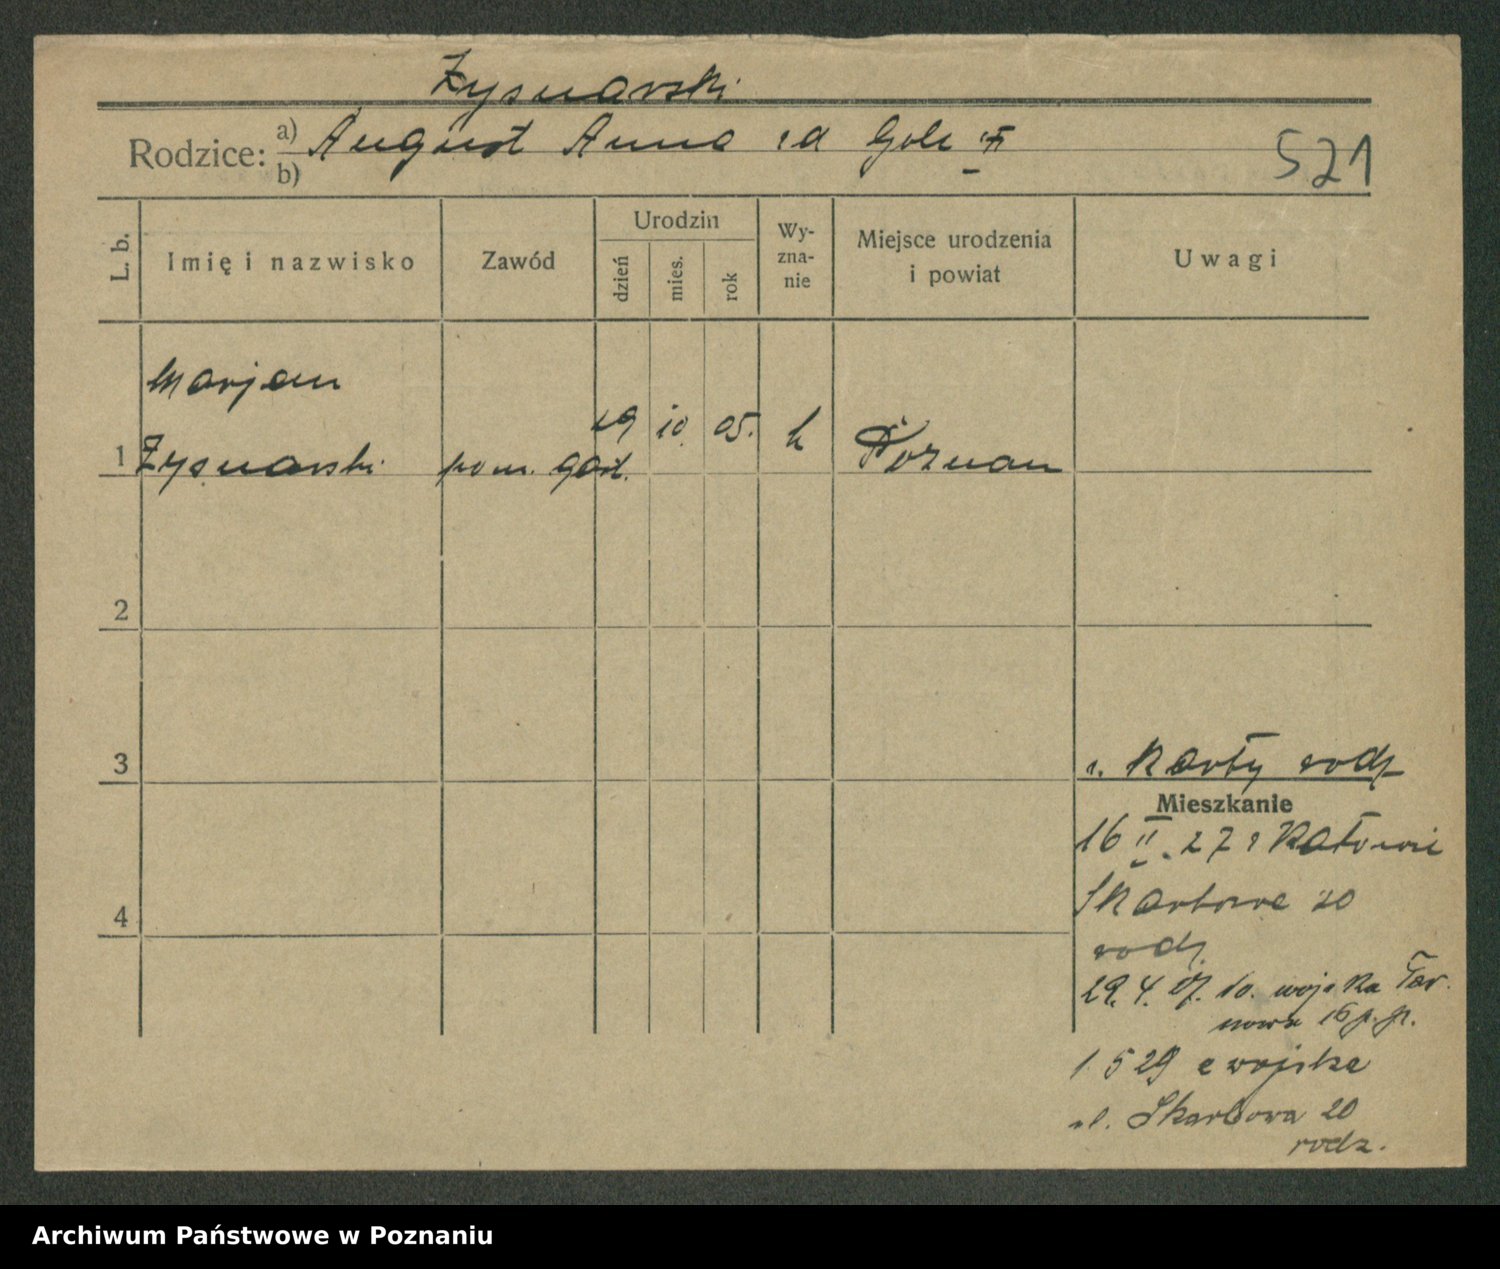 Żysnarski
Rodzice: a) August Anna zd Gole
b)
521
L. b. Imię i nazwisko Zawód Urodzin dzień mies. rok Wyznanie Miejsce urodzenia i powiat Uwagi
Marjan
19 10 05. k
1 Żysnarski pom. gośt. Poznan
2
3
z. Karty rodz
Mieszkanie
16 II. 27 z Katowic
Skarbowa 20
4
rodz.
29. 4. 27. do wojska Tar
nowa 16 p. p.
1 5 29 z wojska
ul. Skarbowa 20
rodz.
Archiwum Państwowe w Poznaniu